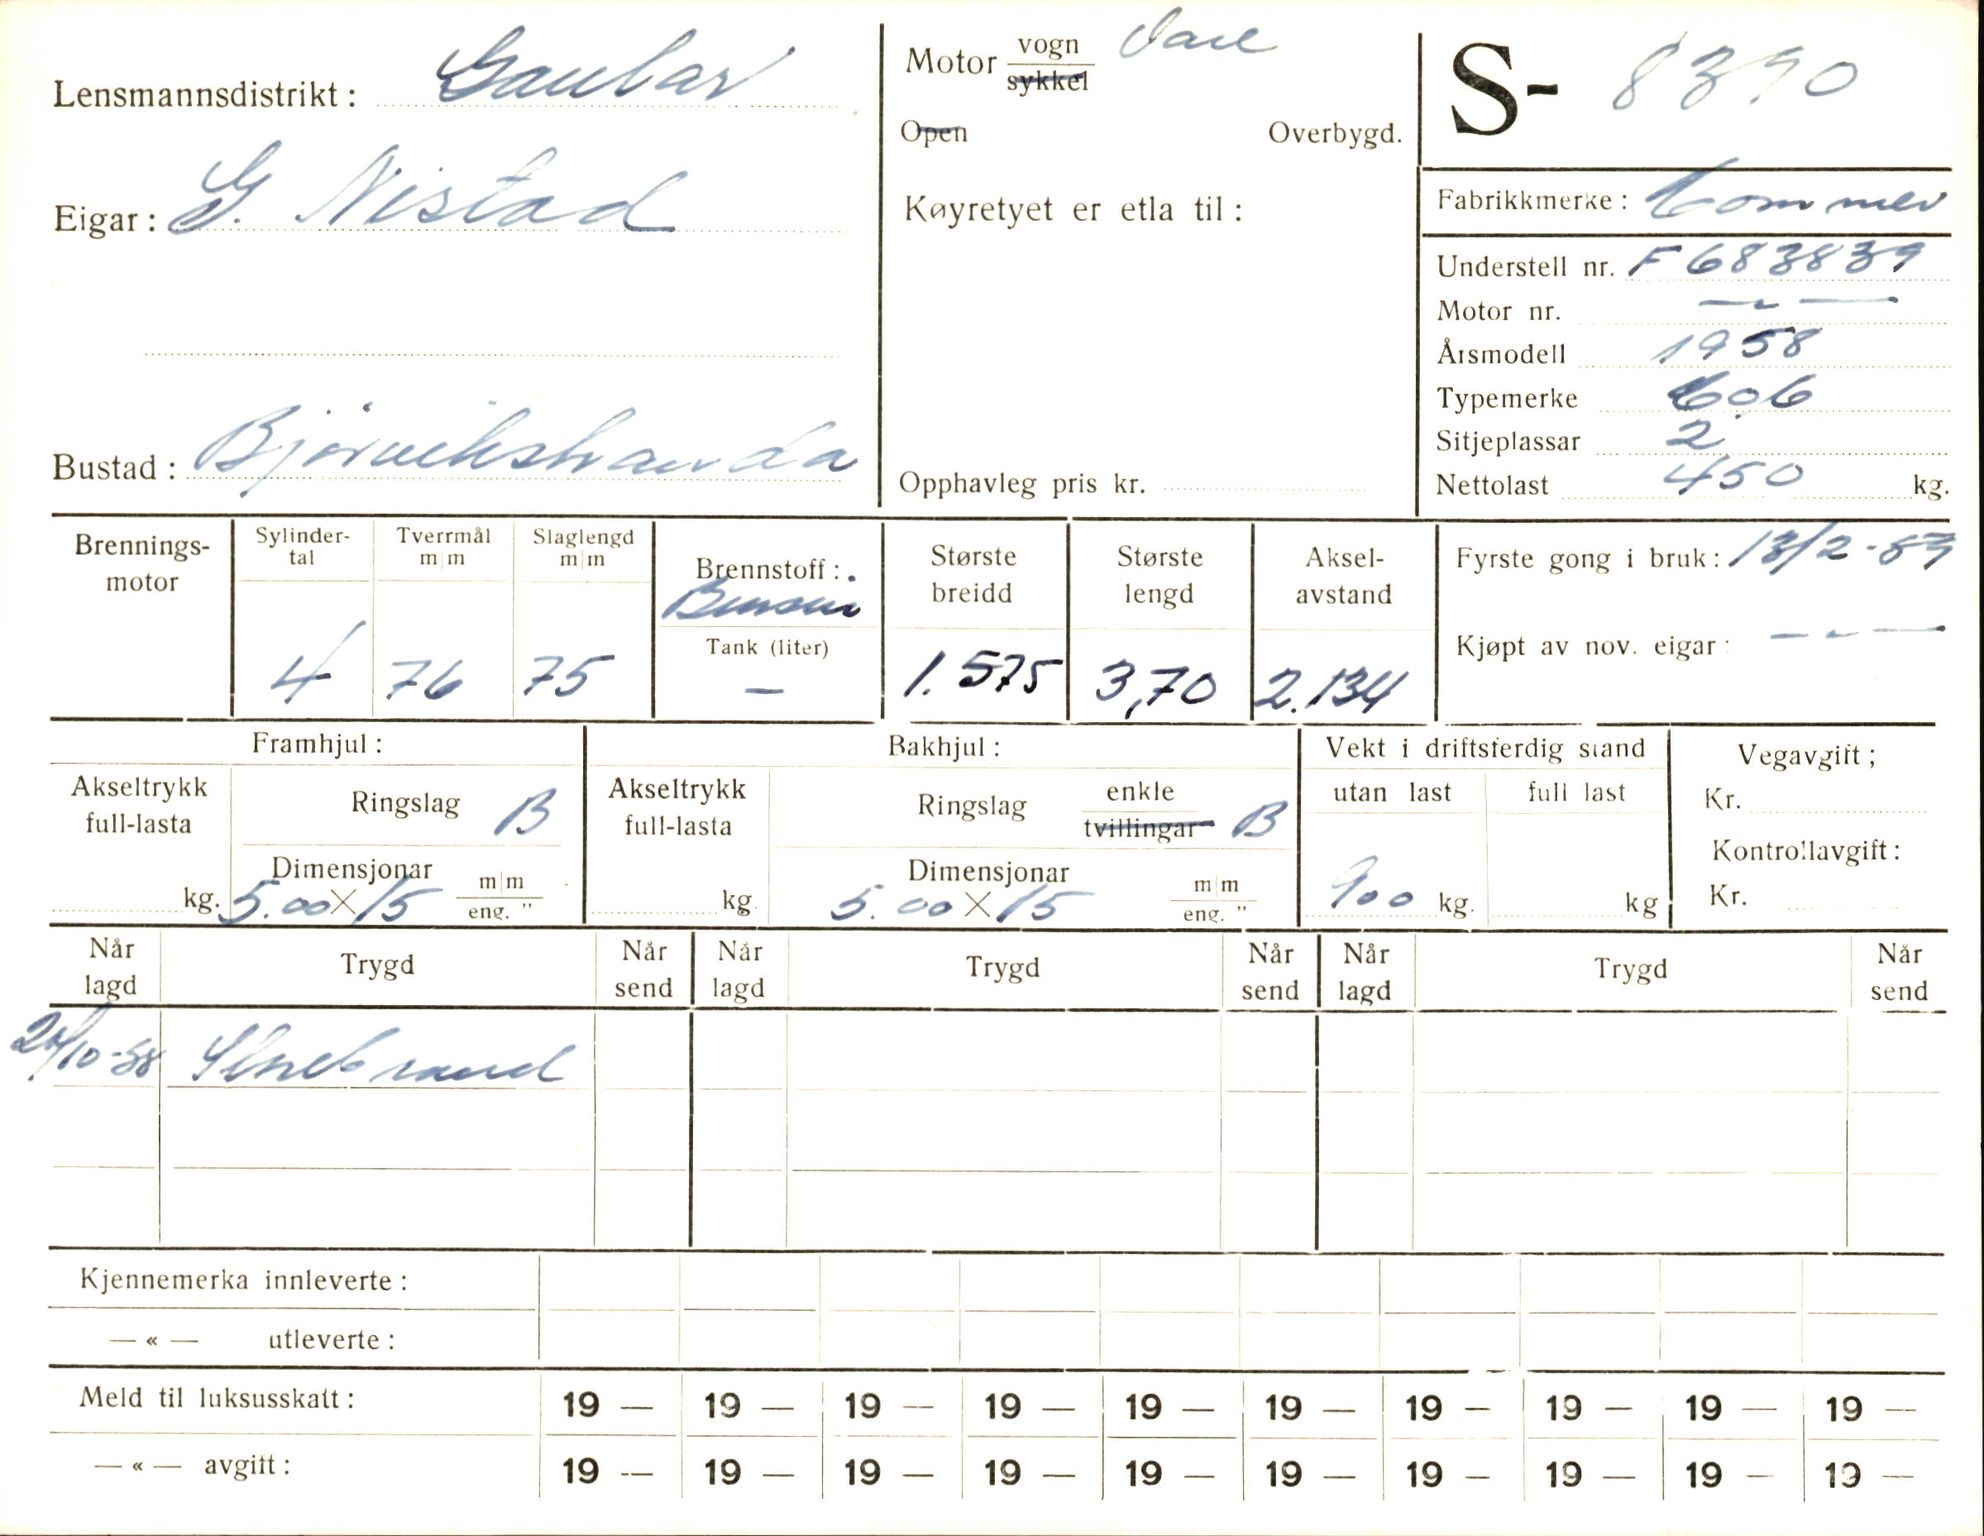 Lensmannsdistrikt: Gaular
Eigar: G. Nistad
Bustad: Bjørvikstranda
Motor vogn
sykkel
Vare
Open Overbygd.
Køyretyet er etla til:
Opphavleg pris kr.
S- 8390
Fabrikkmerke: Commer
Understell nr. F683839
Motor nr. — " —
Årsmodell 1958
Typemerke 606
Sitjeplassar 2
Nettolast 450 kg.
Brennings-
motor
Sylinder-
tal
4
Tverrmål
m|m
76
Slaglengd
m|m
75
Brennstoff:
Bensin
Tank (liter)
—
Største
breidd
1.575
Største
lengd
3,70
Aksel-
avstand
2.134
Fyrste gong i bruk: 13/2-59
Kjøpt av nov. eigar: — " —
Framhjul:
Akseltrykk
full-lasta
kg.
Ringslag B
Dimensjonar
5.00 × 15 m|m
eng. "
Bakhjul:
Akseltrykk
full-lasta
kg
Ringslag enkle
tvillingar B
Dimensjonar
5.00 × 15 m|m
eng. "
Vekt i driftsferdig stand
utan last
900 kg.
full last
kg
Vegavgift;
Kr.
Kontrollavgift:
Kr.
Når
lagd Trygd Når
send Når
lagd Trygd Når
send Når
lagd Trygd Når
send
/10-58
Kjennemerka innleverte:
— « — utleverte:
Meld til luksusskatt: 19 — 19 — 19 — 19 — 19 — 19 — 19 — 19 — 19 — 19 —
— « — avgift: 19 — 19 — 19 — 19 — 19 — 19 — 19 — 19 — 19 — 19 —